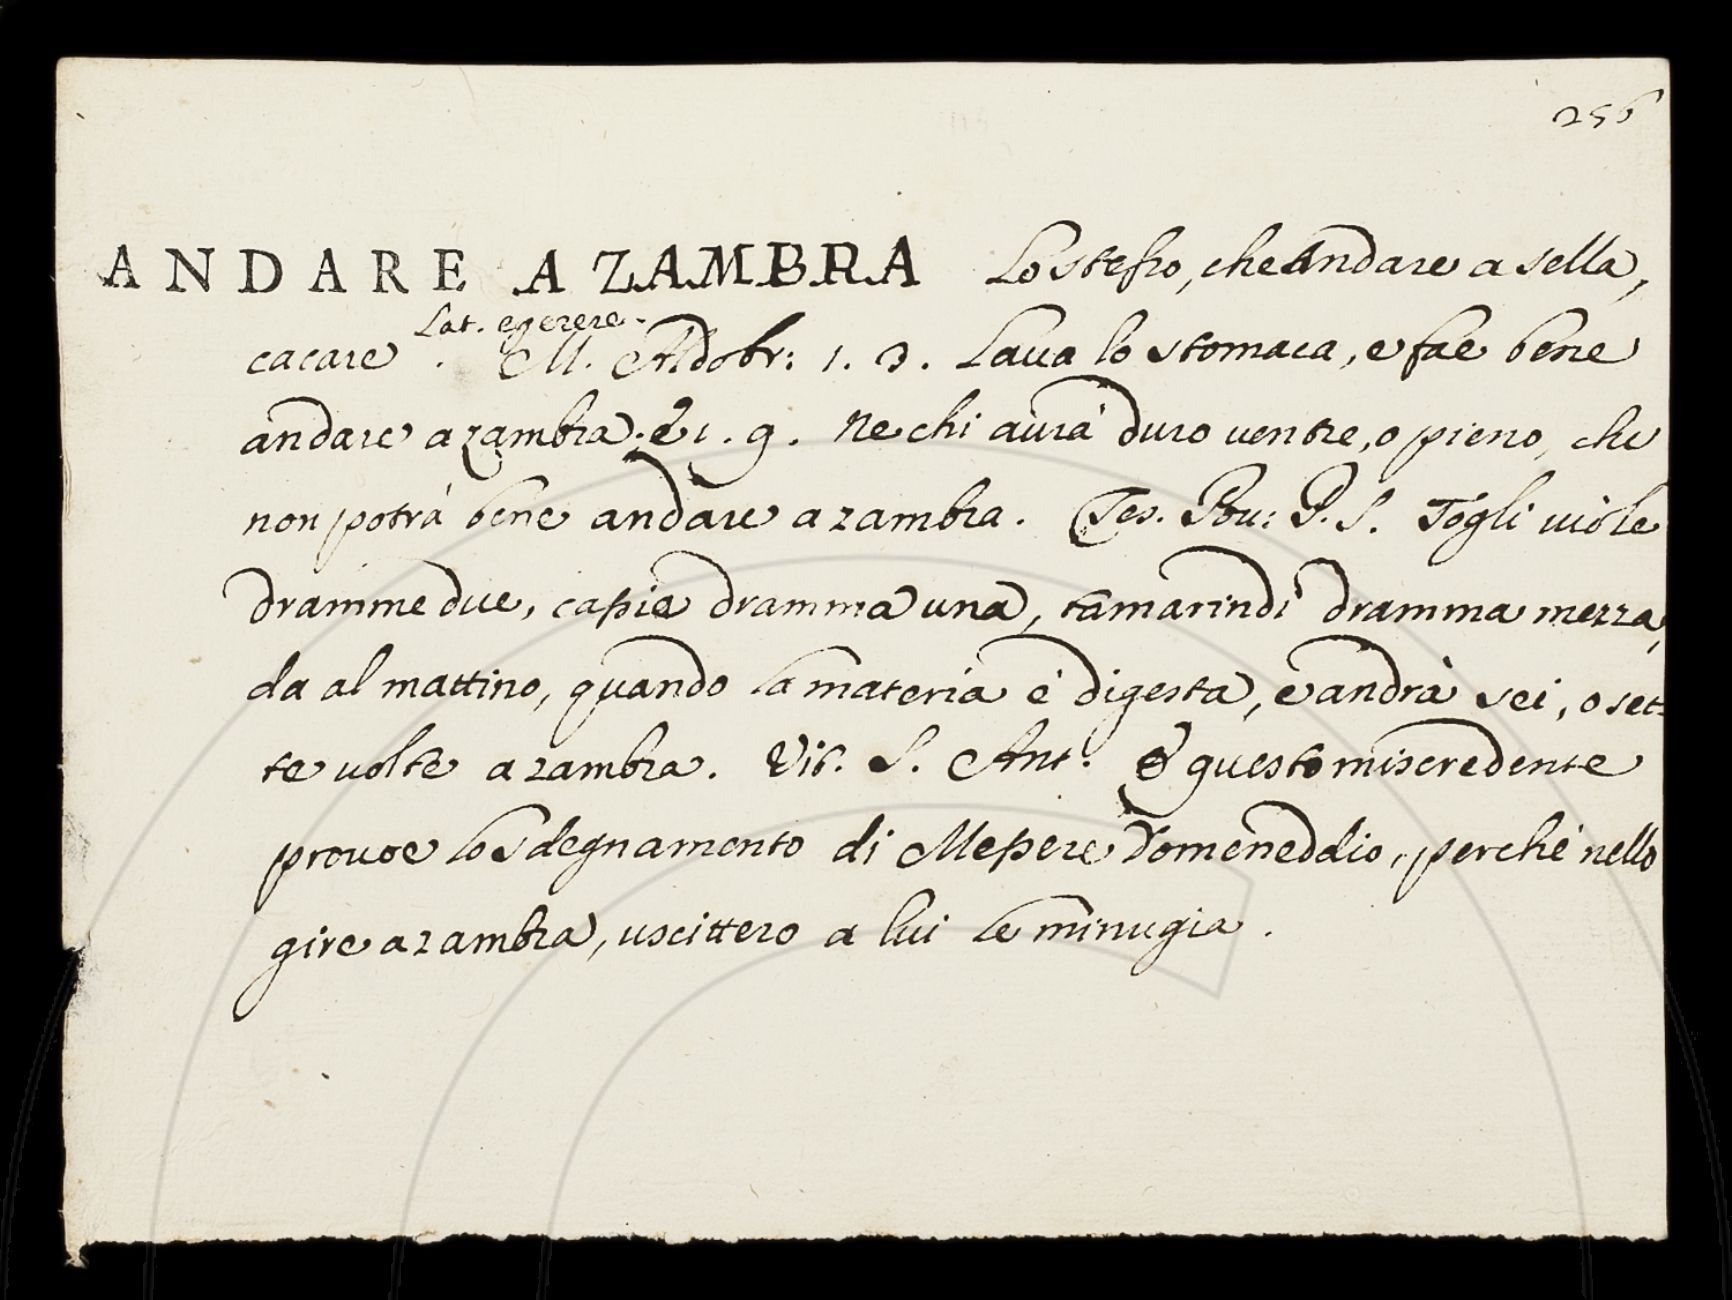 256
ANDARE A ZAMBRA Lo stesso, che Andare a sella,
Lat. egerere.
cacare. M. Aldobr: 1. 3. Laua lo stomaca, e fae bene
andare a zambra. E 1. 9. Ne chi aurà duro uentre, o pieno, che
non potrà bene andare a zambra. Tes. Pou: P. S. Togli uiole
dramme due, cassie dramma una, tamarindi dramma mezza,
da al mattino, quando la materia è digesta, e andrà sei, o set-
te uolte a zambra. Vit. S. Ant. E questo miscredente
prouoe lo sdegnamento di Messere Domeneddio, perchè nello
gire a zambra, uscittero a lui le minugia.